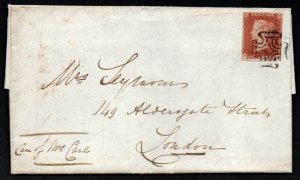 POSTAGE
Mrs Seymour
149 Aldersgate Street
London
Care of Mrs